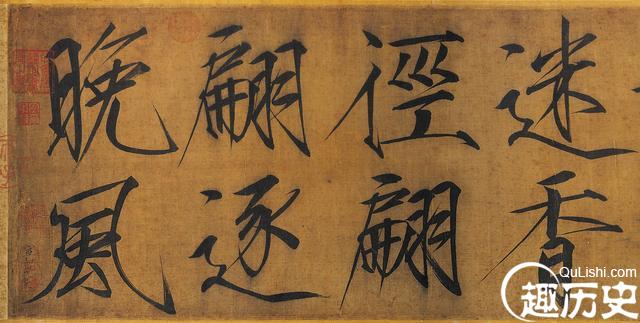 迷香
徑翩
翩逐
晚風
QuLishi.com
趣历史